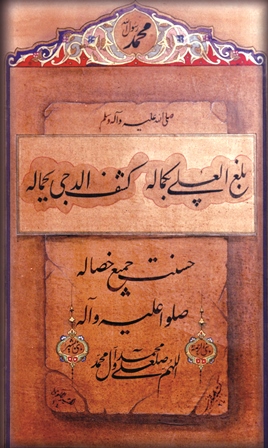 محمد رسول الله
صلی الله علیه و آله وسلم
بلغ العلی بکماله کشف الدجی بجماله
حسنت جمیع خصاله
صلوا علیه وآله
اللهم صل علی محمد وآل محمد